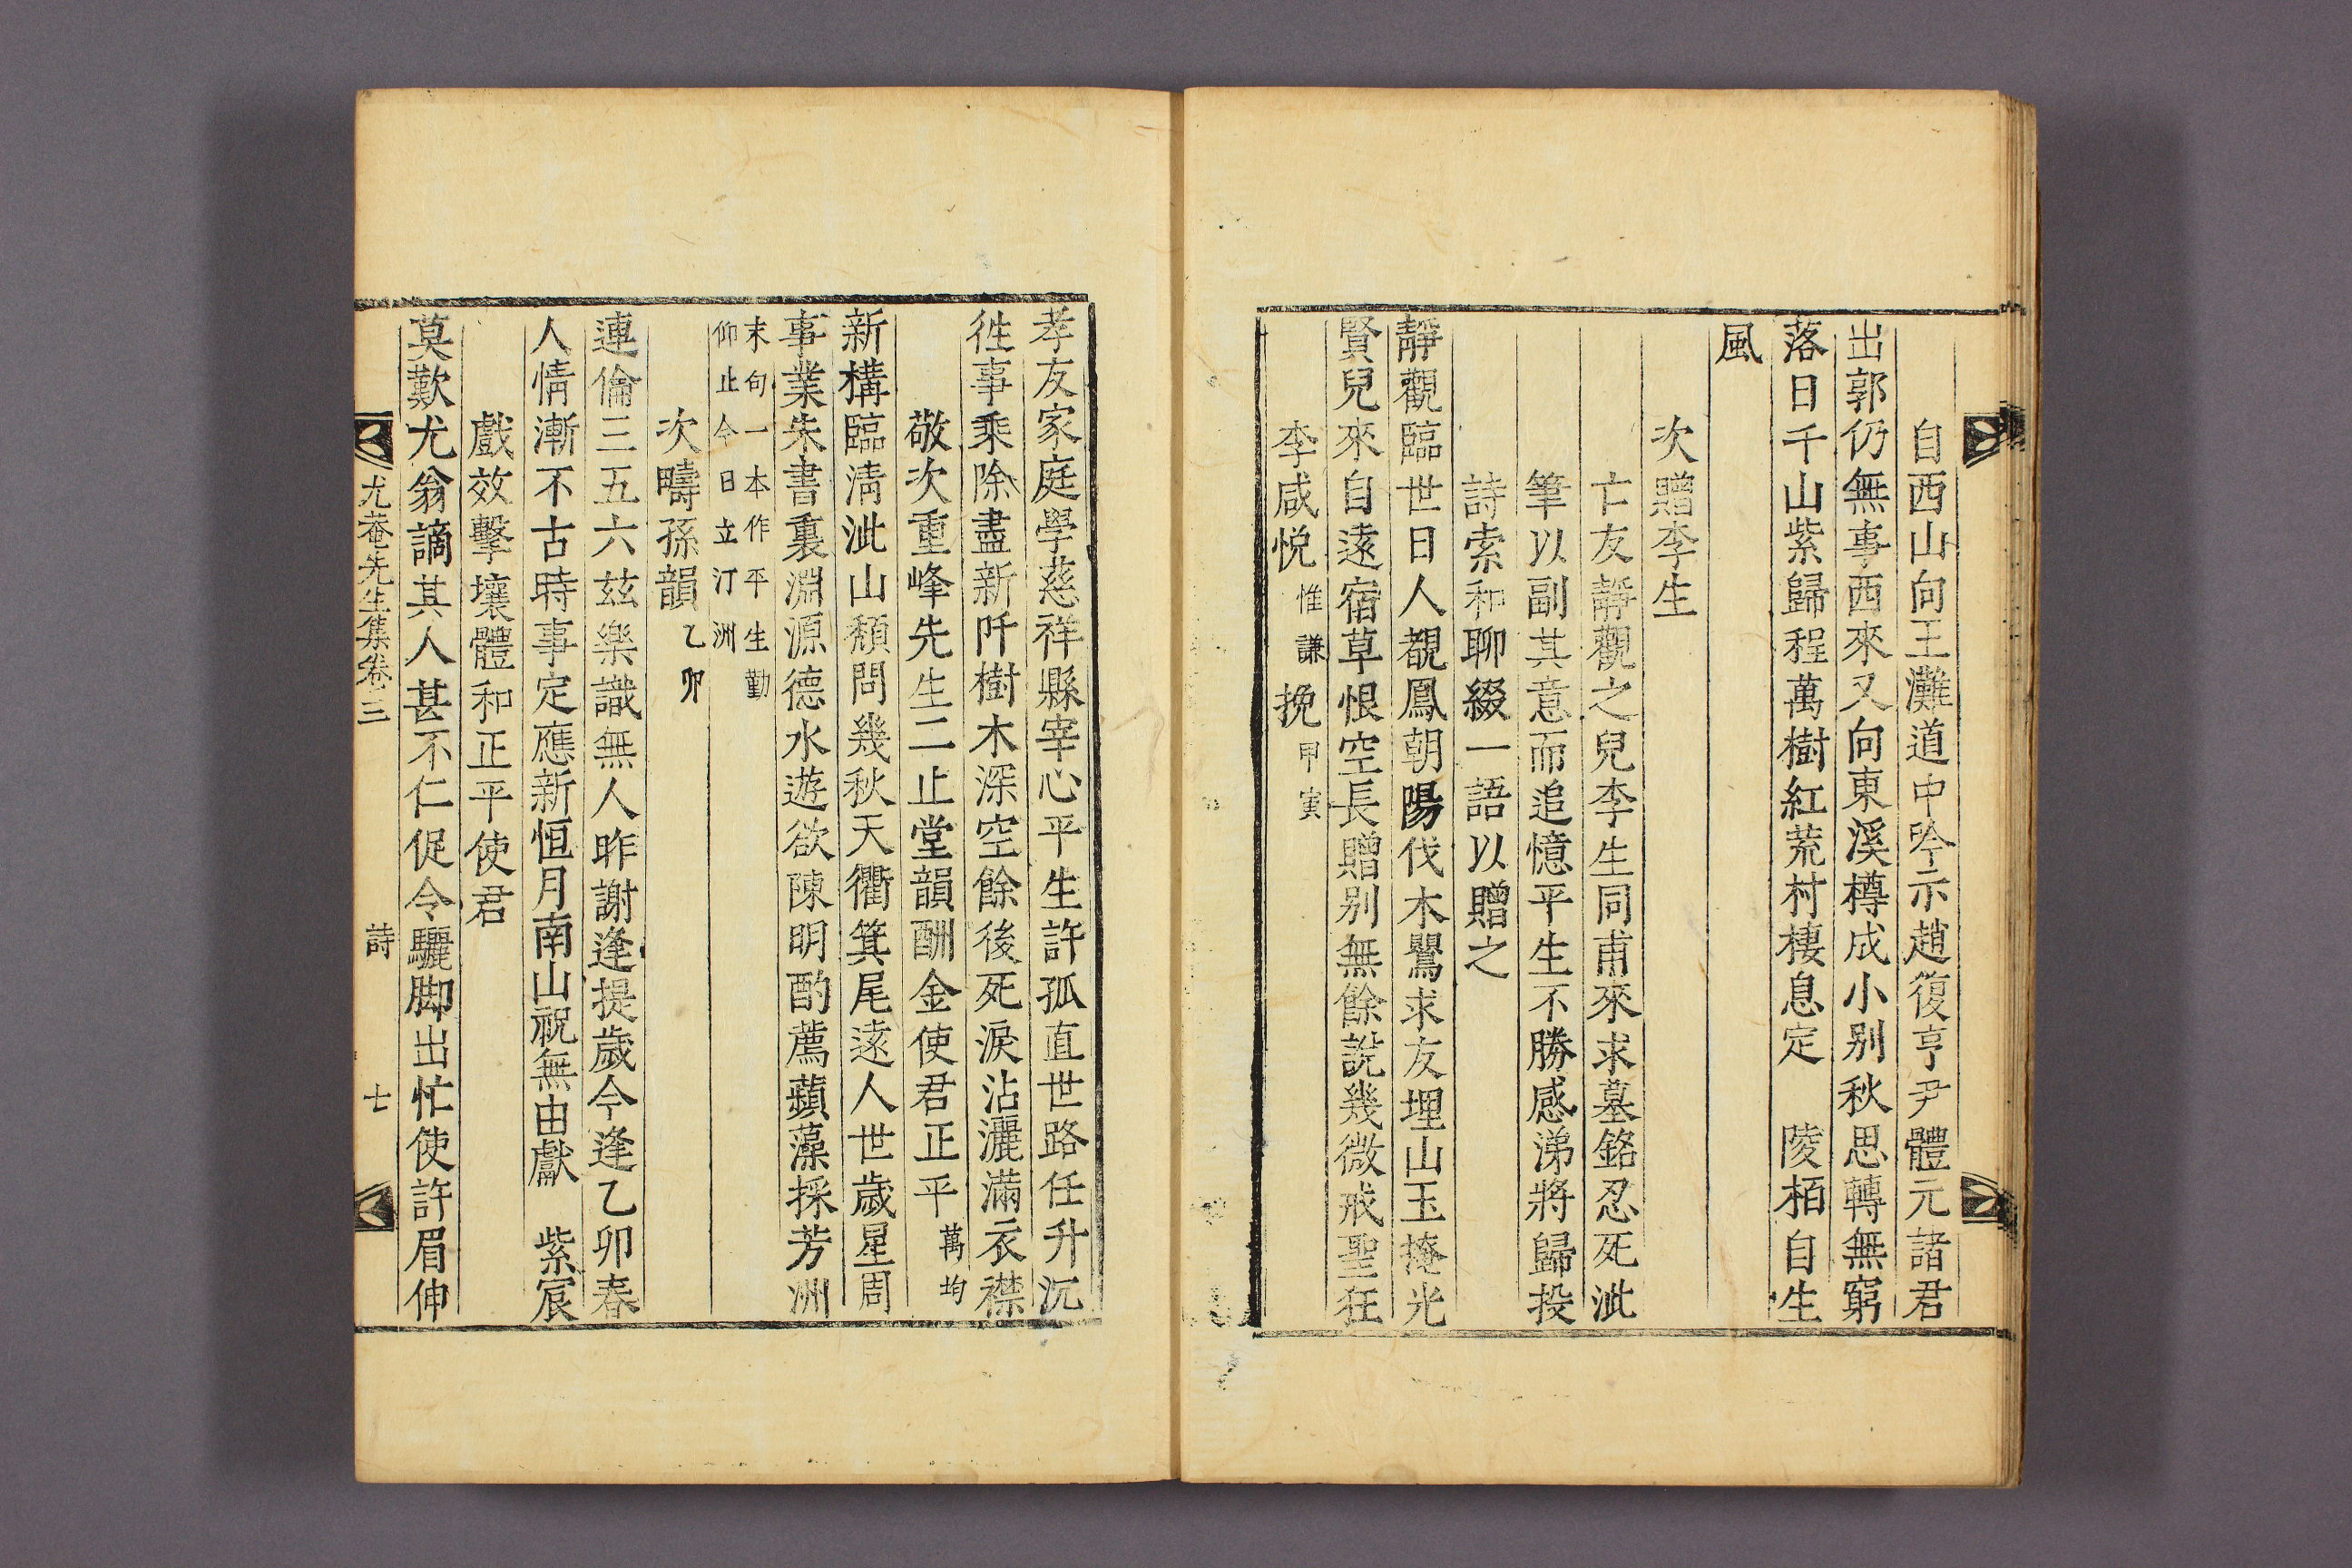 自西山向王灘道中吟示趙復亨尹體元諸君
出郭仍無事西來又向東溪樽成小别秋思轉無窮
落日千山紫歸程萬樹紅荒村棲息定　陵栢自生
風
次贈李生
亡友靜觀之兒李生同甫來求墓銘忍死泚
筆以副其意而追憶平生不勝感涕將歸投
詩索和聊綴一語以贈之
靜觀臨世日人覩鳳朝陽伐木鸎求友埋山玉掩光
賢兒來自遠宿草恨空長贈别無餘說幾微戒聖狂
李咸悅惟謙挽甲寅
孝友家庭學慈祥縣宰心平生許孤直世路任升沉
徃事乘除盡新阡樹木深空餘後死淚沾灑滿衣襟
敬次重峰先生二止堂韻酬金使君正平萬均
新構臨淸泚山頹問幾秋天衢箕尾遠人世歲星周
事業朱書裏淵源德水遊欲陳明酌薦蘋藻採芳洲
末句一本作平生勤
仰止今日立汀洲
次疇孫韻乙卯
連倫三五六玆樂識無人昨謝逢提歲今逢乙卯春
人情漸不古時事定應新恒月南山祝無由獻　紫宸
戲效擊壤體和正平使君
莫歎尤翁謫其人甚不仁促令驪脚出忙使許眉伸
尤菴先生集卷三
詩
七